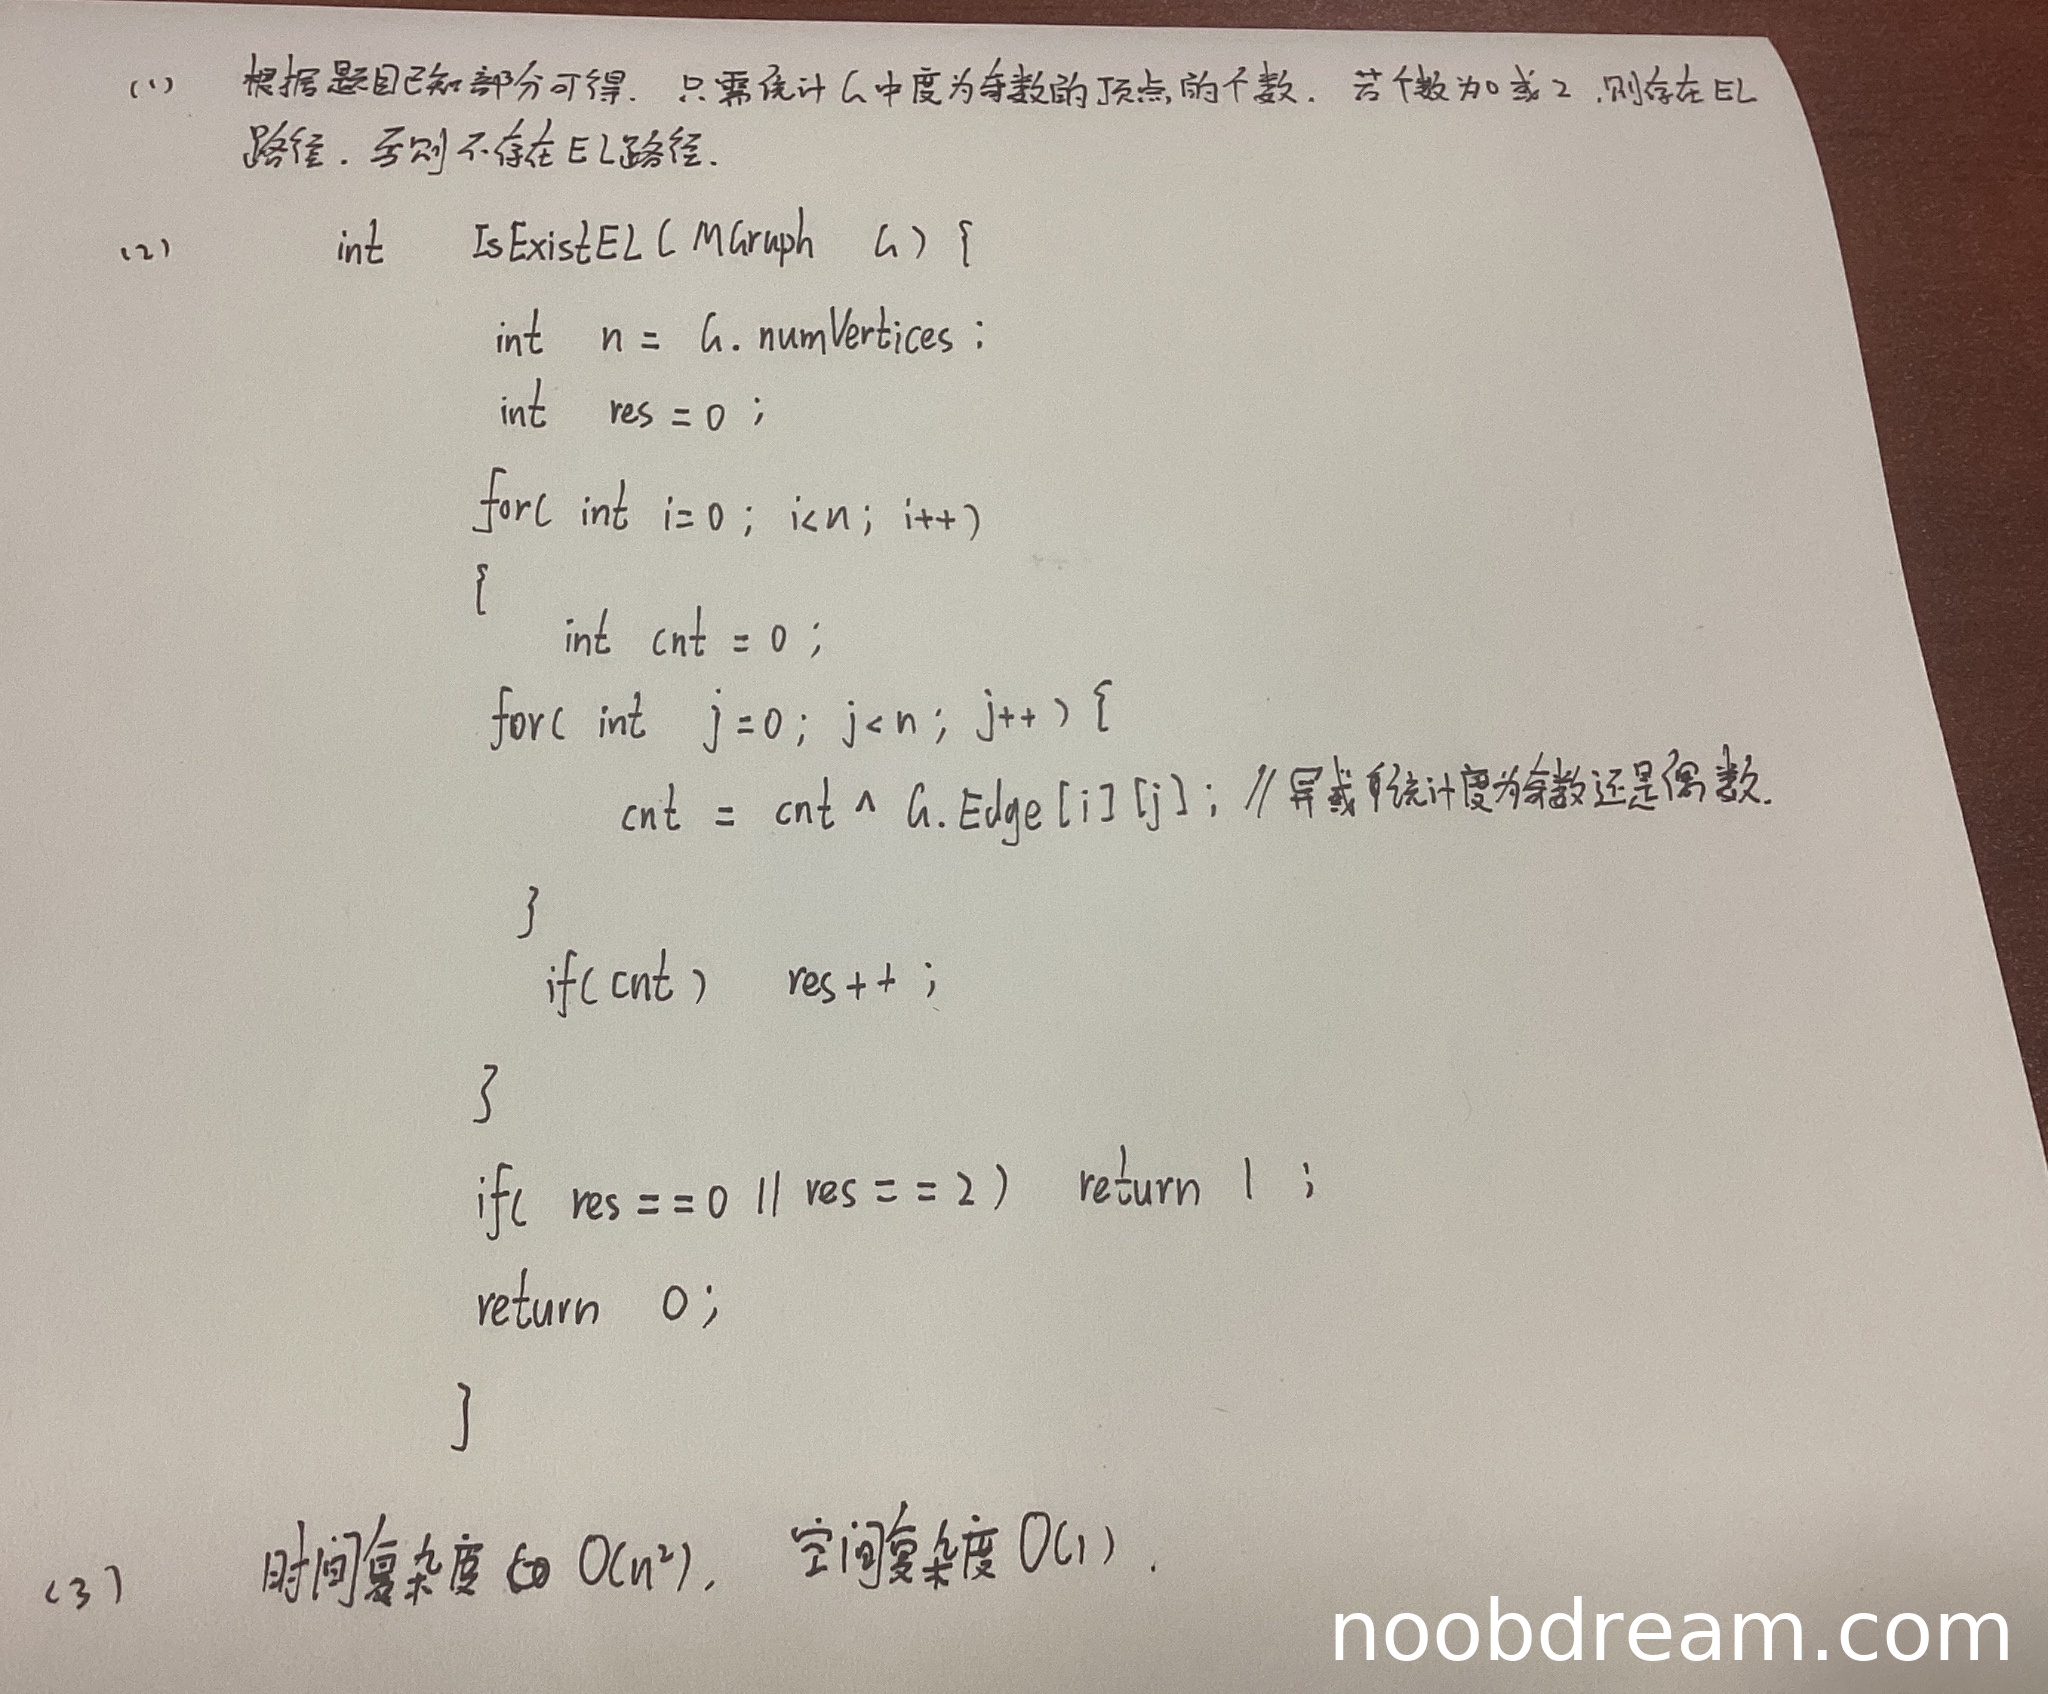 (1) 根据题目已知部分可得. 只需统计G中度为奇数的顶点的个数. 若个数为0或2,则存在EL
路径. 否则不存在EL路径.
(2) int IsExistEL(MGraph G) {
int n = G.numVertices;
int res = 0;
for( int i=0; i<n; i++)
{
int cnt = 0;
for( int j=0; j<n; j++) {
cnt = cnt ^ G.Edge[i][j]; //异或 统计度为奇数还是偶数.
}
if(cnt) res++;
}
if( res==0 || res==2) return 1;
return 0;
}
(3) 时间复杂度 O(n²), 空间复杂度O(1).
noobdream.com